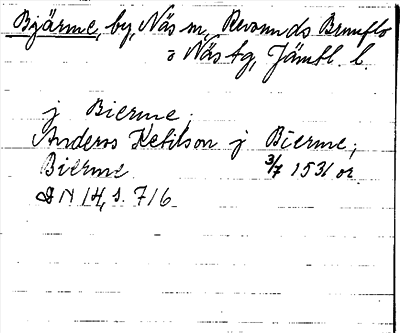 Bjärme, by, Näs sn, Revsunds Brunflo
o Näs tg, Jämtl. l.
j Bierme.
Anders Ketilson j Bierme,
Bierme 3/7 1531 or.
DN 14, s. 716